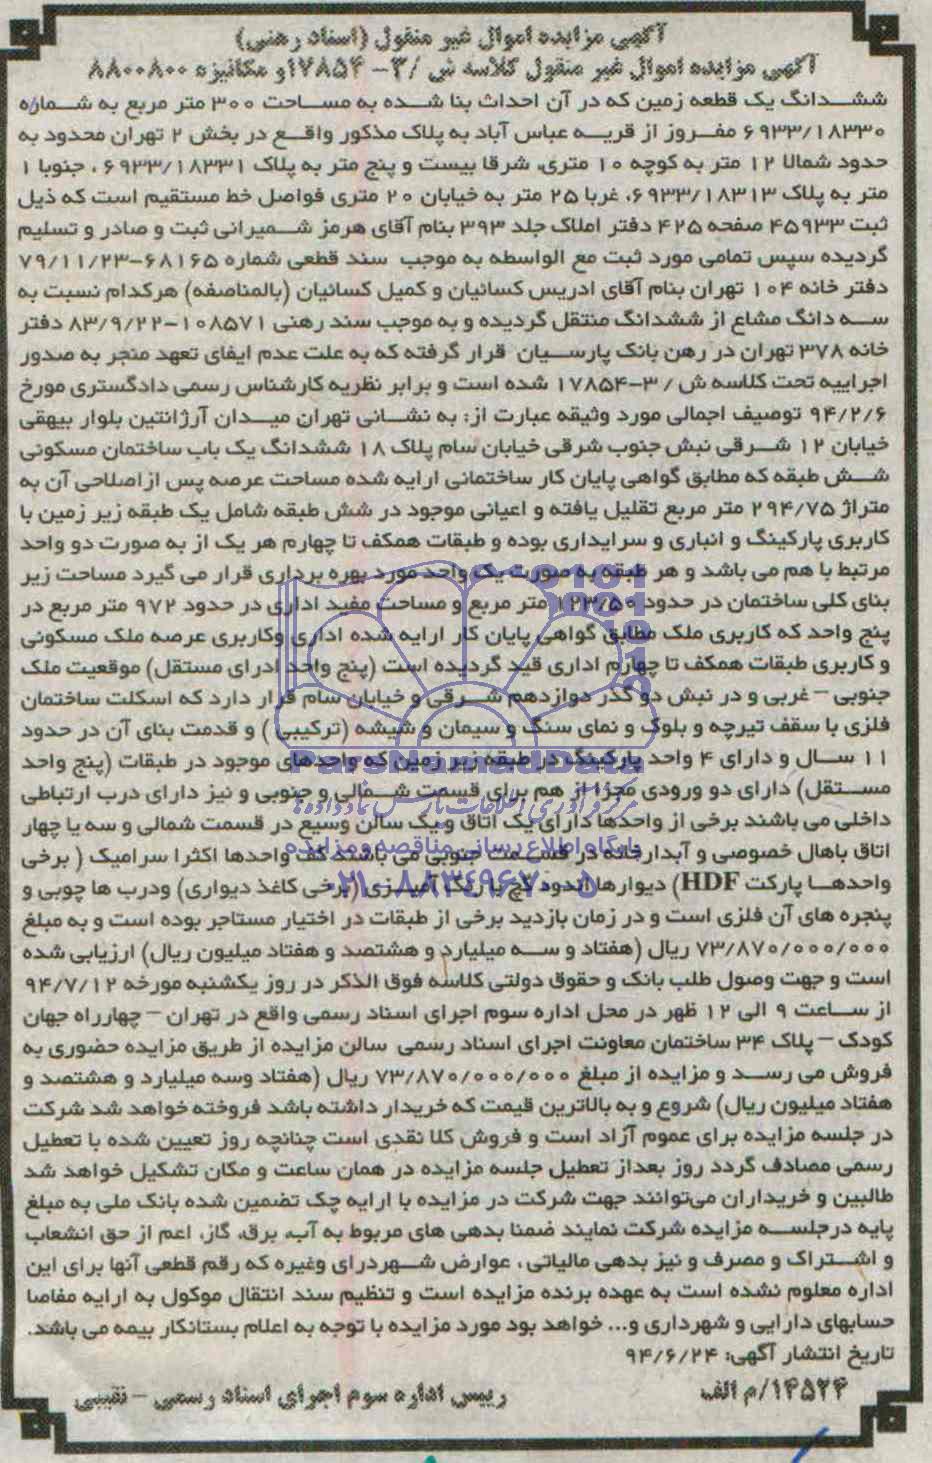 آگهی مزایده اموال غیر منقول (اسناد رهنی)
آگهی مزایده اموال غیر منقول کلاسه ش /۳- ۱۷۸۵۴و مکانیزه ۸۸۰۰۸۰۰
ششــدانگ یک قطعه زمین که در آن احداث بنا شده به مساحت ۳۰۰ متر مربع به شماره
۶۹۳۳/۱۸۳۳۰ مفــروز از قریــه عباس آباد به پلاک مذکور واقــع در بخش ۲ تهران محدود به
حدود شمالا ۱۲ متر به کوچه ۱۰ متری، شرقا بیست و پنج متر به پلاک ۶۹۳۳/۱۸۳۳۱ ، جنوبا ۱
متر به پلاک ۶۹۳۳/۱۸۳۱۳، غربا ۲۵ متر به خیابان ۲۰ متری فواصل خط مستقیم است که ذیل
ثبت ۴۵۹۳۳ صفحه ۴۲۵ دفتر املاک جلد ۳۹۳ بنام آقای هرمز شــمیرانی ثبت و صادر و تسلیم
گردیده سپس تمامی مورد ثبت مع الواسطه به موجب سند قطعی شماره ۶۸۱۶۵-۷۹/۱۱/۲۳
دفتر خانه ۱۰۴ تهران بنام آقای ادریس کسائیان و کمیل کسائیان (بالمناصفه) هرکدام نسبت به
ســه دانگ مشاع از ششدانگ منتقل گردیده و به موجب سند رهنی ۱۰۸۵۷۱-۸۳/۹/۲۲ دفتر
خانه ۳۷۸ تهران در رهن بانک پارســیان قرار گرفته که به علت عدم ایفای تعهد منجر به صدور
اجراییه تحت کلاسه ش / ۳-۱۷۸۵۴ شده است و برابر نظریه کارشناس رسمی دادگستری مورخ
۹۴/۲/۶ توصیف اجمالی مورد وثیقه عبارت از: به نشــانی تهران میــدان آرژانتین بلوار بیهقی
خیابان ۱۲ شــرقی نبش جنوب شرقی خیابان سام پلاک ۱۸ ششدانگ یک باب ساختمان مسکونی
شــش طبقه که مطابق گواهی پایان کار ساختمانی ارایه شده مساحت عرصه پس از اصلاحی آن به
متراژ ۲۹۴/۷۵ متر مربع تقلیل یافته و اعیانی موجود در شش طبقه شامل یک طبقه زیر زمین با
کاربری پارکینگ و انباری و سرایداری بوده و طبقات همکف تا چهارم هر یک از به صورت دو واحد
مرتبط با هم می باشد و هر طبقه به صورت یک واحد مورد بهره برداری قرار می گیرد مساحت زیر
بنای کلی ساختمان در حدود ۱۲۳/۵۰ متر مربع و مساحت مفید اداری در حدود ۹۷۲ متر مربع در
پنج واحد که کاربری ملک مطابق گواهی پایان کار ارایه شده اداری وکاربری عرصه ملک مسکونی
و کاربری طبقات همکف تا چهارم اداری قید گردیده است (پنج واحد ادرای مستقل) موقعیت ملک
جنوبی – غربی و در نبش دو گذر دوازدهم شــرقی و خیابان سام قرار دارد که اسکلت ساختمان
فلزی با سقف تیرچه و بلوک و نمای سنگ و سیمان و شیشه (ترکیبی ) و قدمت بنای آن در حدود
۱۱ ســال و دارای ۴ واحد پارکینگ در طبقه زیر زمین که واحدهای موجود در طبقات (پنج واحد
مســتقل) دارای دو ورودی مجزا از هم برای قسمت شــمالی و جنوبی و نیز دارای درب ارتباطی
داخلی می باشند برخی از واحدها دارای یک اتاق و یک سالن وسیع در قسمت شمالی و سه یا چهار
اتاق باهال خصوصی و آبدارخانه در قســمت جنوبی می باشند کف واحدها اکثرا سرامیک ( برخی
واحدهــا پارکت HDF) دیوارها اندود گچ با رنگ آمیــزی (برخی کاغذ دیواری) ودرب ها چوبی و
پنجره های آن فلزی است و در زمان بازدید برخی از طبقات در اختیار مستاجر بوده است و به مبلغ
۷۳/۸۷۰/۰۰۰/۰۰۰ ریال (هفتاد و ســه میلیارد و هشتصد و هفتاد میلیون ریال) ارزیابی شده
است و جهت وصول طلب بانک و حقوق دولتی کلاسه فوق الذکر در روز یکشنبه مورخه ۹۴/۷/۱۲
از ســاعت ۹ الی ۱۲ ظهر در محل اداره سوم اجرای اسناد رسمی واقع در تهران – چهارراه جهان
کودک – پلاک ۳۴ ساختمان معاونت اجرای اسناد رسمی سالن مزایده از طریق مزایده حضوری به
فروش می رســد و مزایده از مبلغ ۷۳/۸۷۰/۰۰۰/۰۰۰ ریال (هفتاد وسه میلیارد و هشتصد و
هفتاد میلیون ریال) شروع و به بالاترین قیمت که خریدار داشته باشد فروخته خواهد شد شرکت
در جلسه مزایده برای عموم آزاد است و فروش کلا نقدی است چنانچه روز تعیین شده با تعطیل
رسمی مصادف گردد روز بعداز تعطیل جلسه مزایده در همان ساعت و مکان تشکیل خواهد شد
طالبین و خریداران می‌توانند جهت شرکت در مزایده با ارایه چک تضمین شده بانک ملی به مبلغ
پایه درجلســه مزایده شرکت نمایند ضمنا بدهی های مربوط به آب، برق، گاز، اعم از حق انشعاب
و اشــتراک و مصرف و نیز بدهی مالیاتی ، عوارض شــهردرای وغیره که رقم قطعی آنها برای این
اداره معلوم نشده است به عهده برنده مزایده است و تنظیم سند انتقال موکول به ارایه مفاصا
حسابهای دارایی و شهرداری و... خواهد بود مورد مزایده با توجه به اعلام بستانکار بیمه می باشد.
تاریخ انتشار آگهی: ۹۴/۶/۲۴
۱۴۵۲۴/م الف
رییس اداره سوم اجرای اسناد رسمی – نقیبی
ParsNamadData
مرکز فرآوری اطلاعات پارس نماد داده ها
پایگاه اطلاع رسانی مناقصه و مزایده
۰۲۱-۸۸۳۴۹۶۷۰-۵